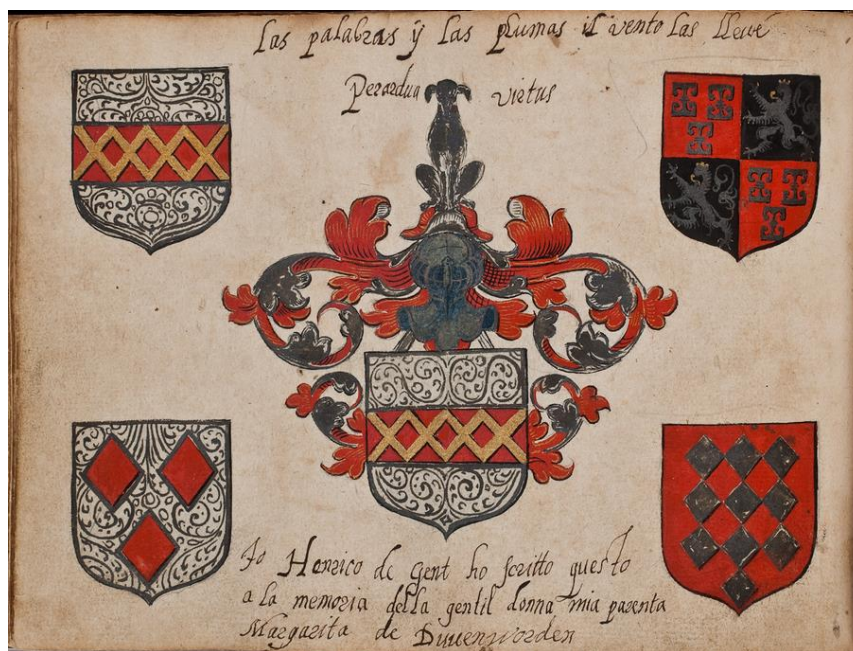 Las palabras ÿ las plumas il vento las llevé
Perardua virtus
Io Henrico de Gent ho scritto questo
a la memoria della gentil donna mia parenta
Margarita de Duvenvorden